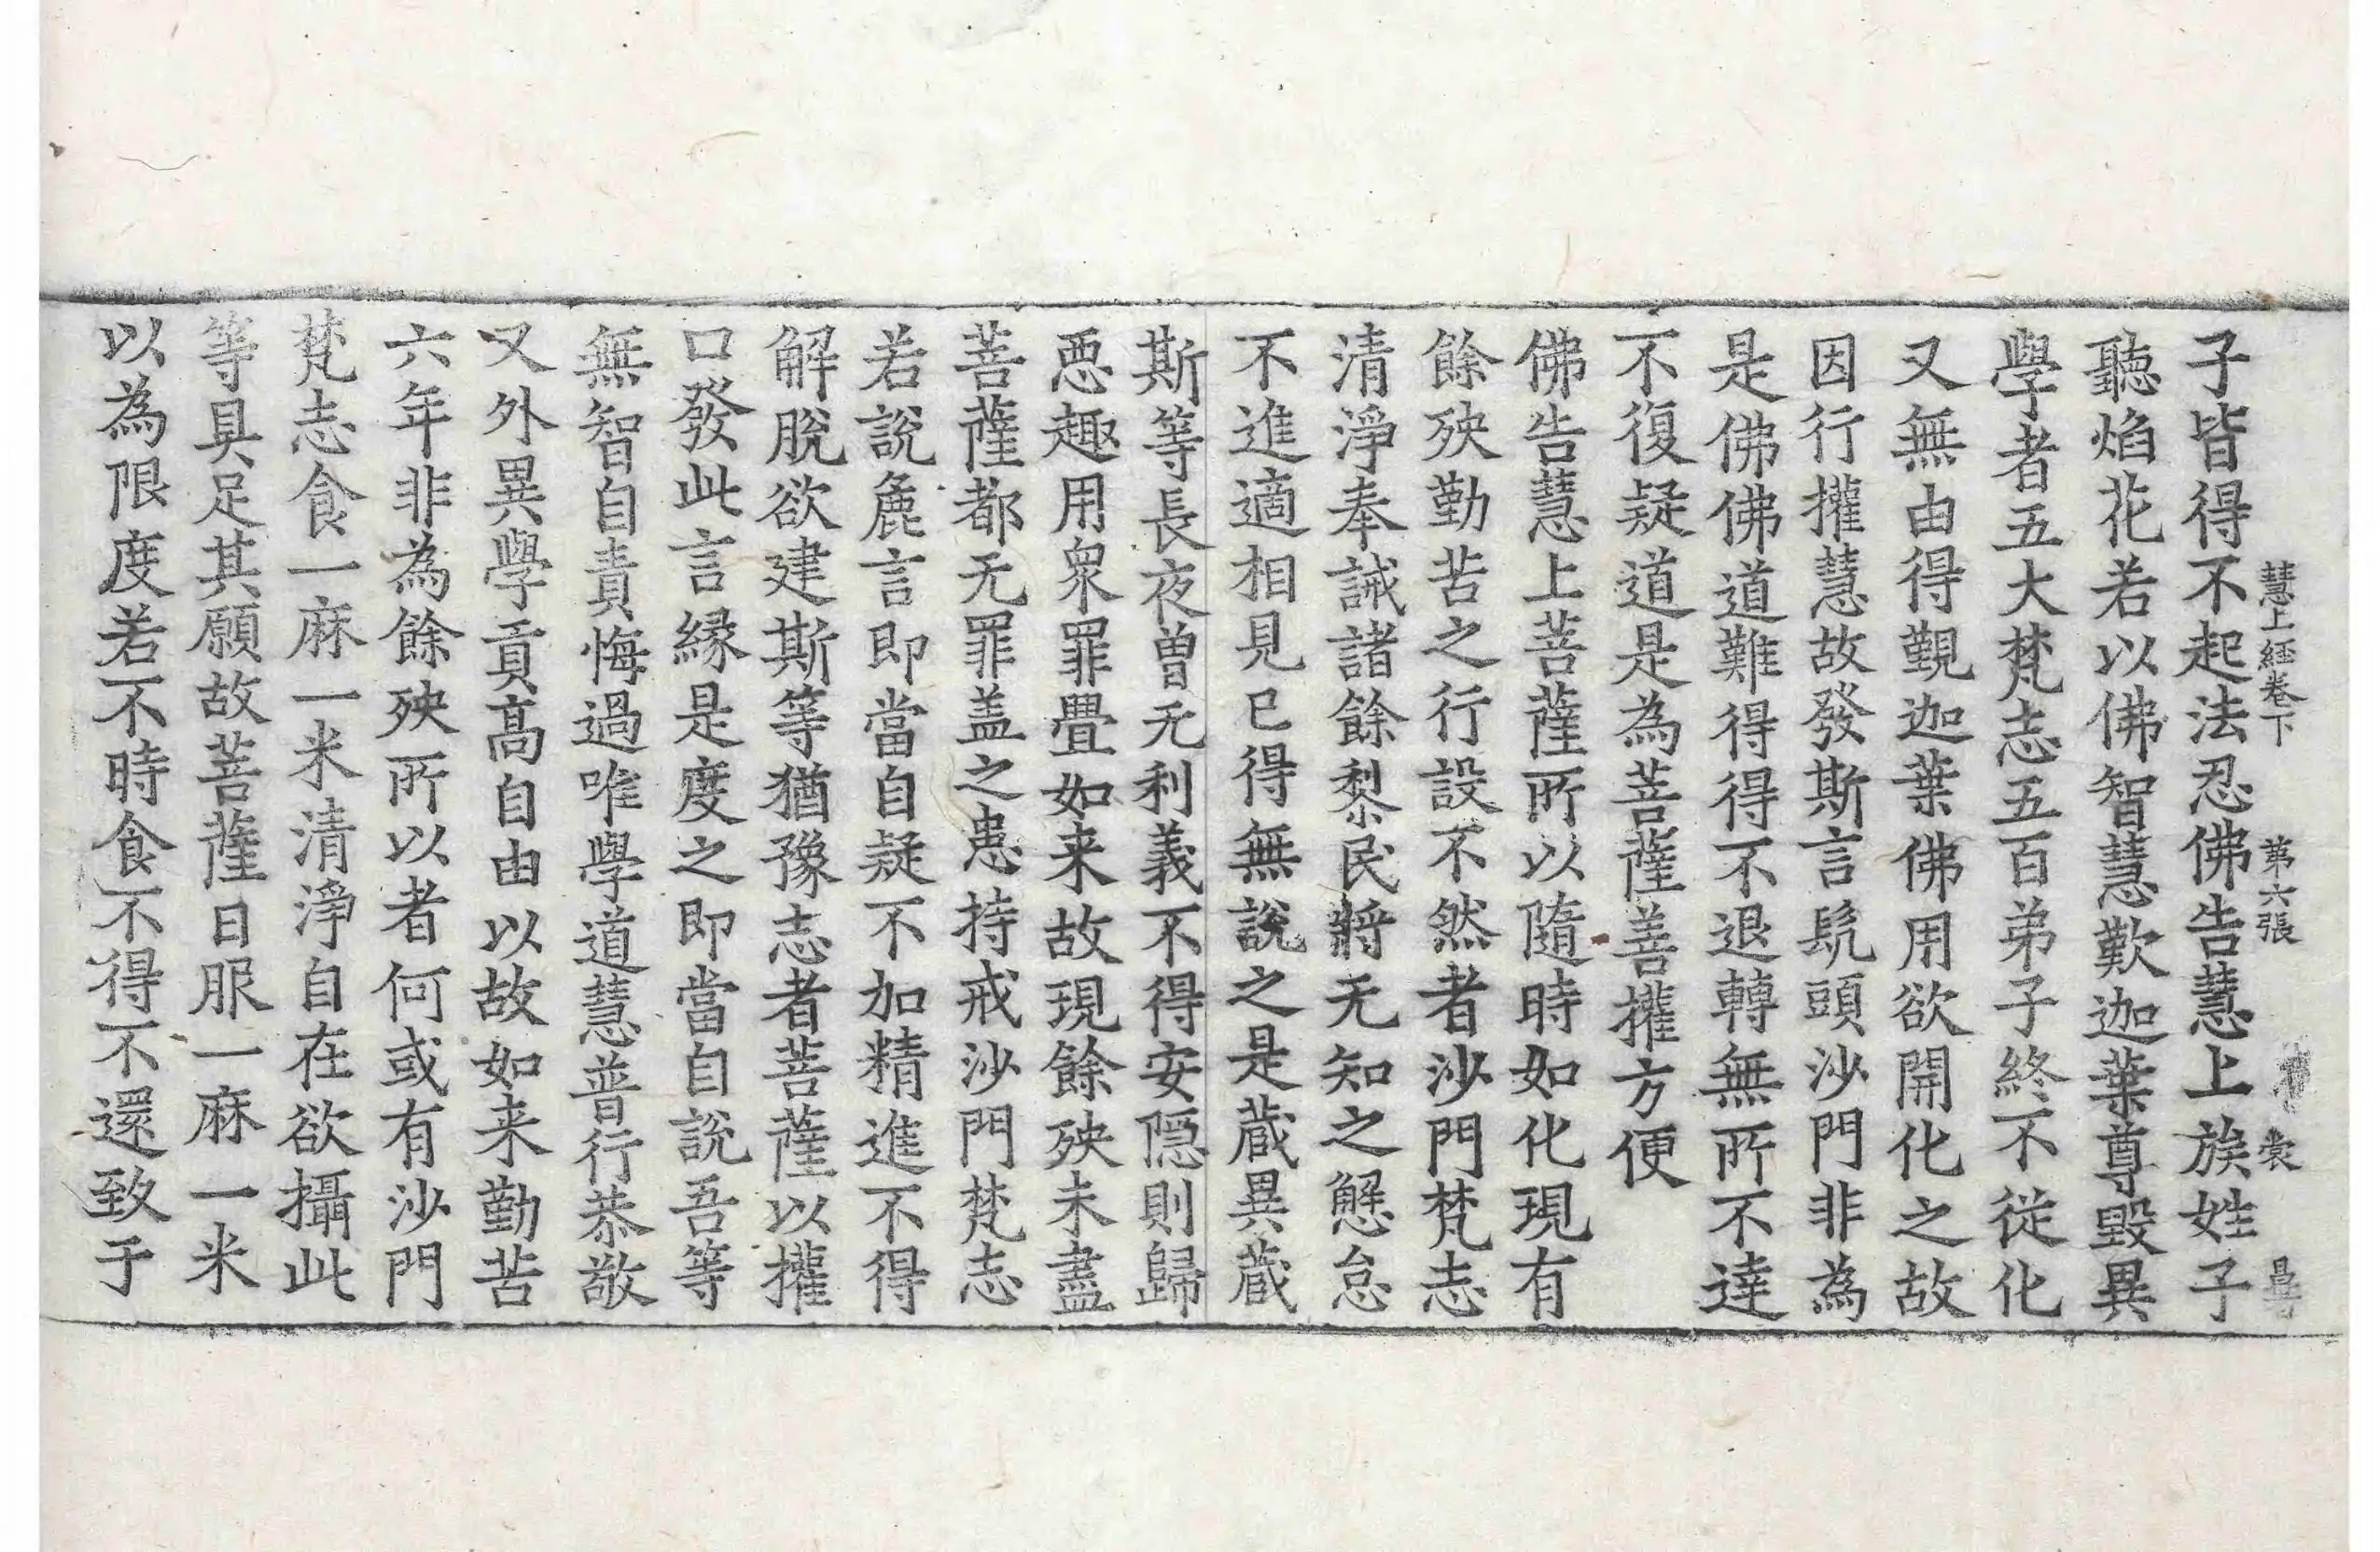 慧上經卷下 第六張 裳
子皆得不起法忍佛告慧上族姓子
聽焰花若以佛智慧歎迦葉尊毀異
學者五大梵志五百弟子終不從化
又無由得覲迦葉佛用欲開化之故
因行權慧故發斯言髡頭沙門非為
是佛佛道難得得不退轉無所不達
不復疑道是為菩薩善權方便
佛告慧上菩薩所以隨時如化現有
餘殃勤苦之行設不然者沙門梵志
清淨奉誡諸餘黎民將无知之懈怠
不進適相見已得無說之是蔵異蔵
斯等長夜曽无利義不得安隱則歸
惡趣用衆罪疊如来故現餘殃未盡
菩薩都无罪盖之患持戒沙門梵志
若說麁言即當自疑不加精進不得
解脫欲建斯等猶豫志者菩薩以權
口發此言緣是度之即當自說吾等
無智自責悔過唯學道慧普行恭敬
又外異學貢高自由以故如来勤苦
六年非為餘殃所以者何或有沙門
梵志食一麻一米清淨自在欲攝此
等具足其願故菩薩日服一麻一米
以為限度若不時食不得不還致于